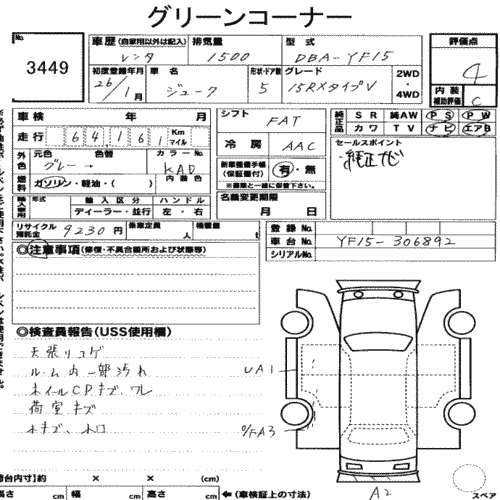 グリーンコーナー
No.
3449
車歴 (自家用以外は記入)
レンタ
排気量
1500
型式
DBA-YF15
評価点
4
内装
補助評価
C
初度登録年月
26/1月
車名
ジューク
形状・ドア数
5
グレード
15RXタイプV
2WD
・
4WD
車検 年 月
走行 64161 Km マイル
シフト
FAT
冷房
AAC
純正品
SR 純AW PS PW
カワ TV ナビ エアB
セールスポイント
純正ナビ
外色
元色
グレー →
色替
カラーNo.
KAD
内装色
燃料
ガソリン・軽油・( )
新車整備手帳
(保証書付)
有・無
※書類と一緒に保管下さい。
輸入車用
年式
輸入区分
ディーラー・並行
ハンドル
左・右
名義変更期限
月 日
リサイクル
預託金
9230円
乗車定員
人
積載量
登録No.
車台No.
YF15-306892
シリアルNo.
◎注意事項(修復・不具合箇所および状態等)
◎検査員報告(USS使用欄)
天張リヨゲ
ルーム内一部汚れ
ホイールCPキズ、ワレ
荷室キズ
UA1
FA3
A2
荷台内寸)約 × × (cm)
長さ cm 幅 cm 高さ cm
←(車検証上の寸法)
スペア